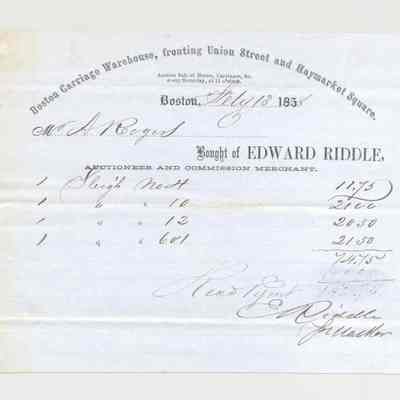 Boston Carriage Warehouse, fronting Union Street and Haymarket Square.
Auction Sale of Horses, Carriages, &c.
every Saturday, at 11 o'clock.
Boston, Feby 13 185
Mr A Rogers
Bought of EDWARD RIDDLE,
AUCTIONEER AND COMMISSION MERCHANT.
1 Sleigh No 11.75
1 " " 10 21.00
1 " " 12 20.50
1 " " 601 21.50
74.75
E Riddle